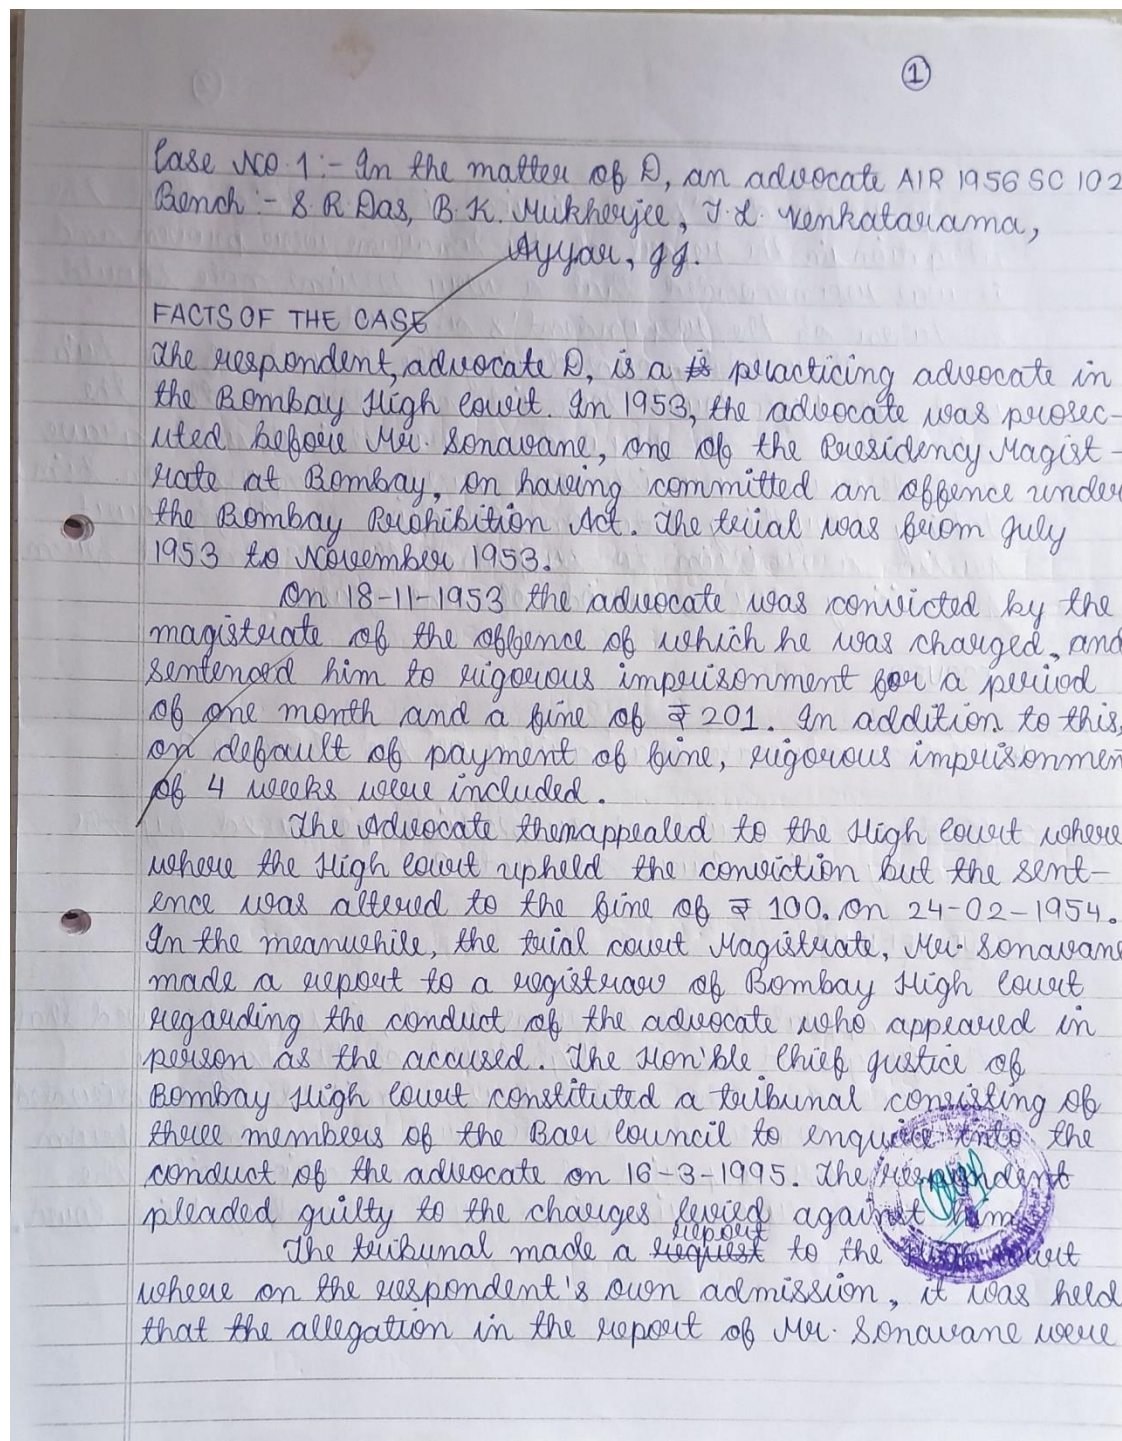 1
Case NO. 1:- In the matter of D, an advocate AIR 1956 SC 102
Bench :- S. R Das, B. K. Mukherjee, T. L. Venkatarama,
Ayyar, JJ.
FACTS OF THE CASE
The respondent, advocate D, is a is practicing advocate in
the Bombay High Court. In 1953, the advocate was prosec-
uted before Mr. Sonavane, one of the Presidency Magist-
rate at Bombay, on having committed an offence under
the Bombay Prohibition Act. The trial was from July
1953 to November 1953.
On 18-11-1953 the advocate was convicted by the
magistrate of the offence of which he was charged, and
sentenced him to rigorous imprisonment for a period
of one month and a fine of ₹ 201. In addition to this,
on default of payment of fine, rigorous imprisonmen
of 4 weeks were included.
The Advocate then appealed to the High Court where
where the High Court upheld the conviction but the sent-
ence was altered to the fine of ₹ 100. on 24-02-1954.
In the meanwhile, the trial court Magistrate, Mr. Sonavane
made a report to a registrar of Bombay High Court
regarding the conduct of the advocate who appeared in
person as the accused. The Hon'ble Chief Justice of
Bombay High Court constituted a tribunal consisting of
three members of the Bar Council to enquire into the
conduct of the advocate on 16-3-1995. The respondent
pleaded guilty to the charges levied against him
The tribunal made a request report to the High Court
where on the respondent's own admission, it was held
that the allegation in the report of Mr. Sonavane were